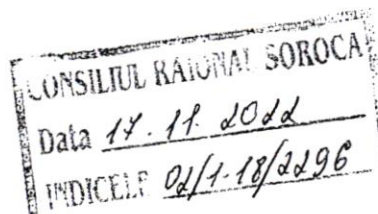 CONSILIUL RAIONAL SOROCA
Data 17.11.2022
INDICELE 02/1-18/2296